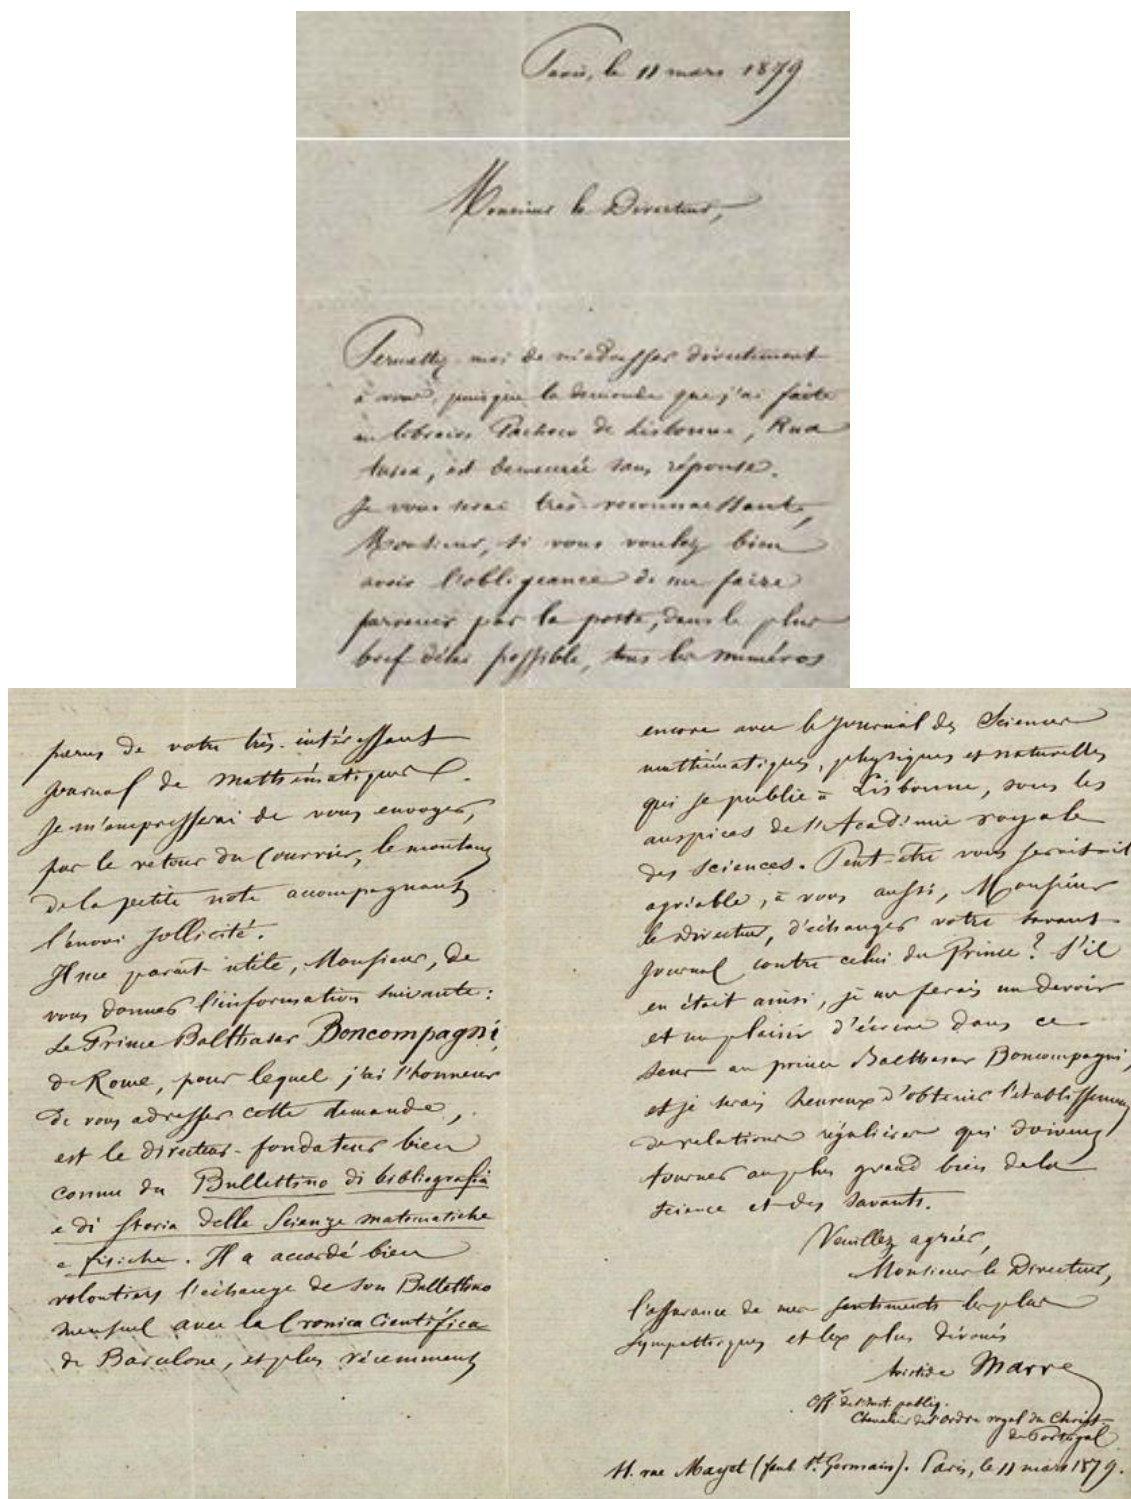 Paris, le 11 mars 1879
Monsieur le Directeur,
Permettez-moi de m'adresser directement
à vous, puisque la demande que j'ai faite
au libraire Pacheco de Lisbonne, Rua
est demeurée sans réponse.
Je vous serai très-reconnaissant,
Monsieur, si vous voulez bien
avoir l'obligeance de me faire
parvenir par la poste, dans le plus
bref délai possible, tous les numéros
parus de votre très-intéressant
Journal de Mathématiques.
Je m'empresserai de vous envoyer,
par le retour du Courrier, le montant
de la petite note accompagnant
l'envoi sollicité.
Il me paraît utile, Monsieur, de
vous donner l'information suivante:
Le Prince Balthasar Boncompagni,
de Rome, pour lequel j'ai l'honneur
de vous adresser cette demande,
est le directeur-fondateur bien
connu du Bullettino di bibliografia
e di storia delle Scienze matematiche
e fisiche. Il a accordé bien
volontiers l'échange de son Bullettino
mensuel avec la Cronica Cientifica
de Barcelone, et plus récemment
encore avec le Journal des Sciences
mathématiques, physiques et naturelles
qui se publie à Lisbonne, sous les
auspices de l'Académie royale
des Sciences. Peut-être vous serait-il
agréable, à vous aussi, Monsieur
le Directeur, d'échanger votre savant
Journal contre celui du Prince? S'il
en était ainsi, je me ferais un devoir
et un plaisir d'écrire dans ce
sens au prince Balthasar Boncompagni,
et je serais heureux d'obtenir l'établissement
de relations régulières qui doivent
tourner au plus grand bien de la
science et des savants.
Veuillez agréer,
Monsieur le Directeur,
l'assurance de mes sentiments les plus
sympathiques et les plus dévoués
Aristide Marre
Off. de l'Inst. publiq.
Chevalier de l'Ordre royal du Christ
de Portugal
11. rue Mayet (faub. St. Germain). Paris, le 11 mars 1879.